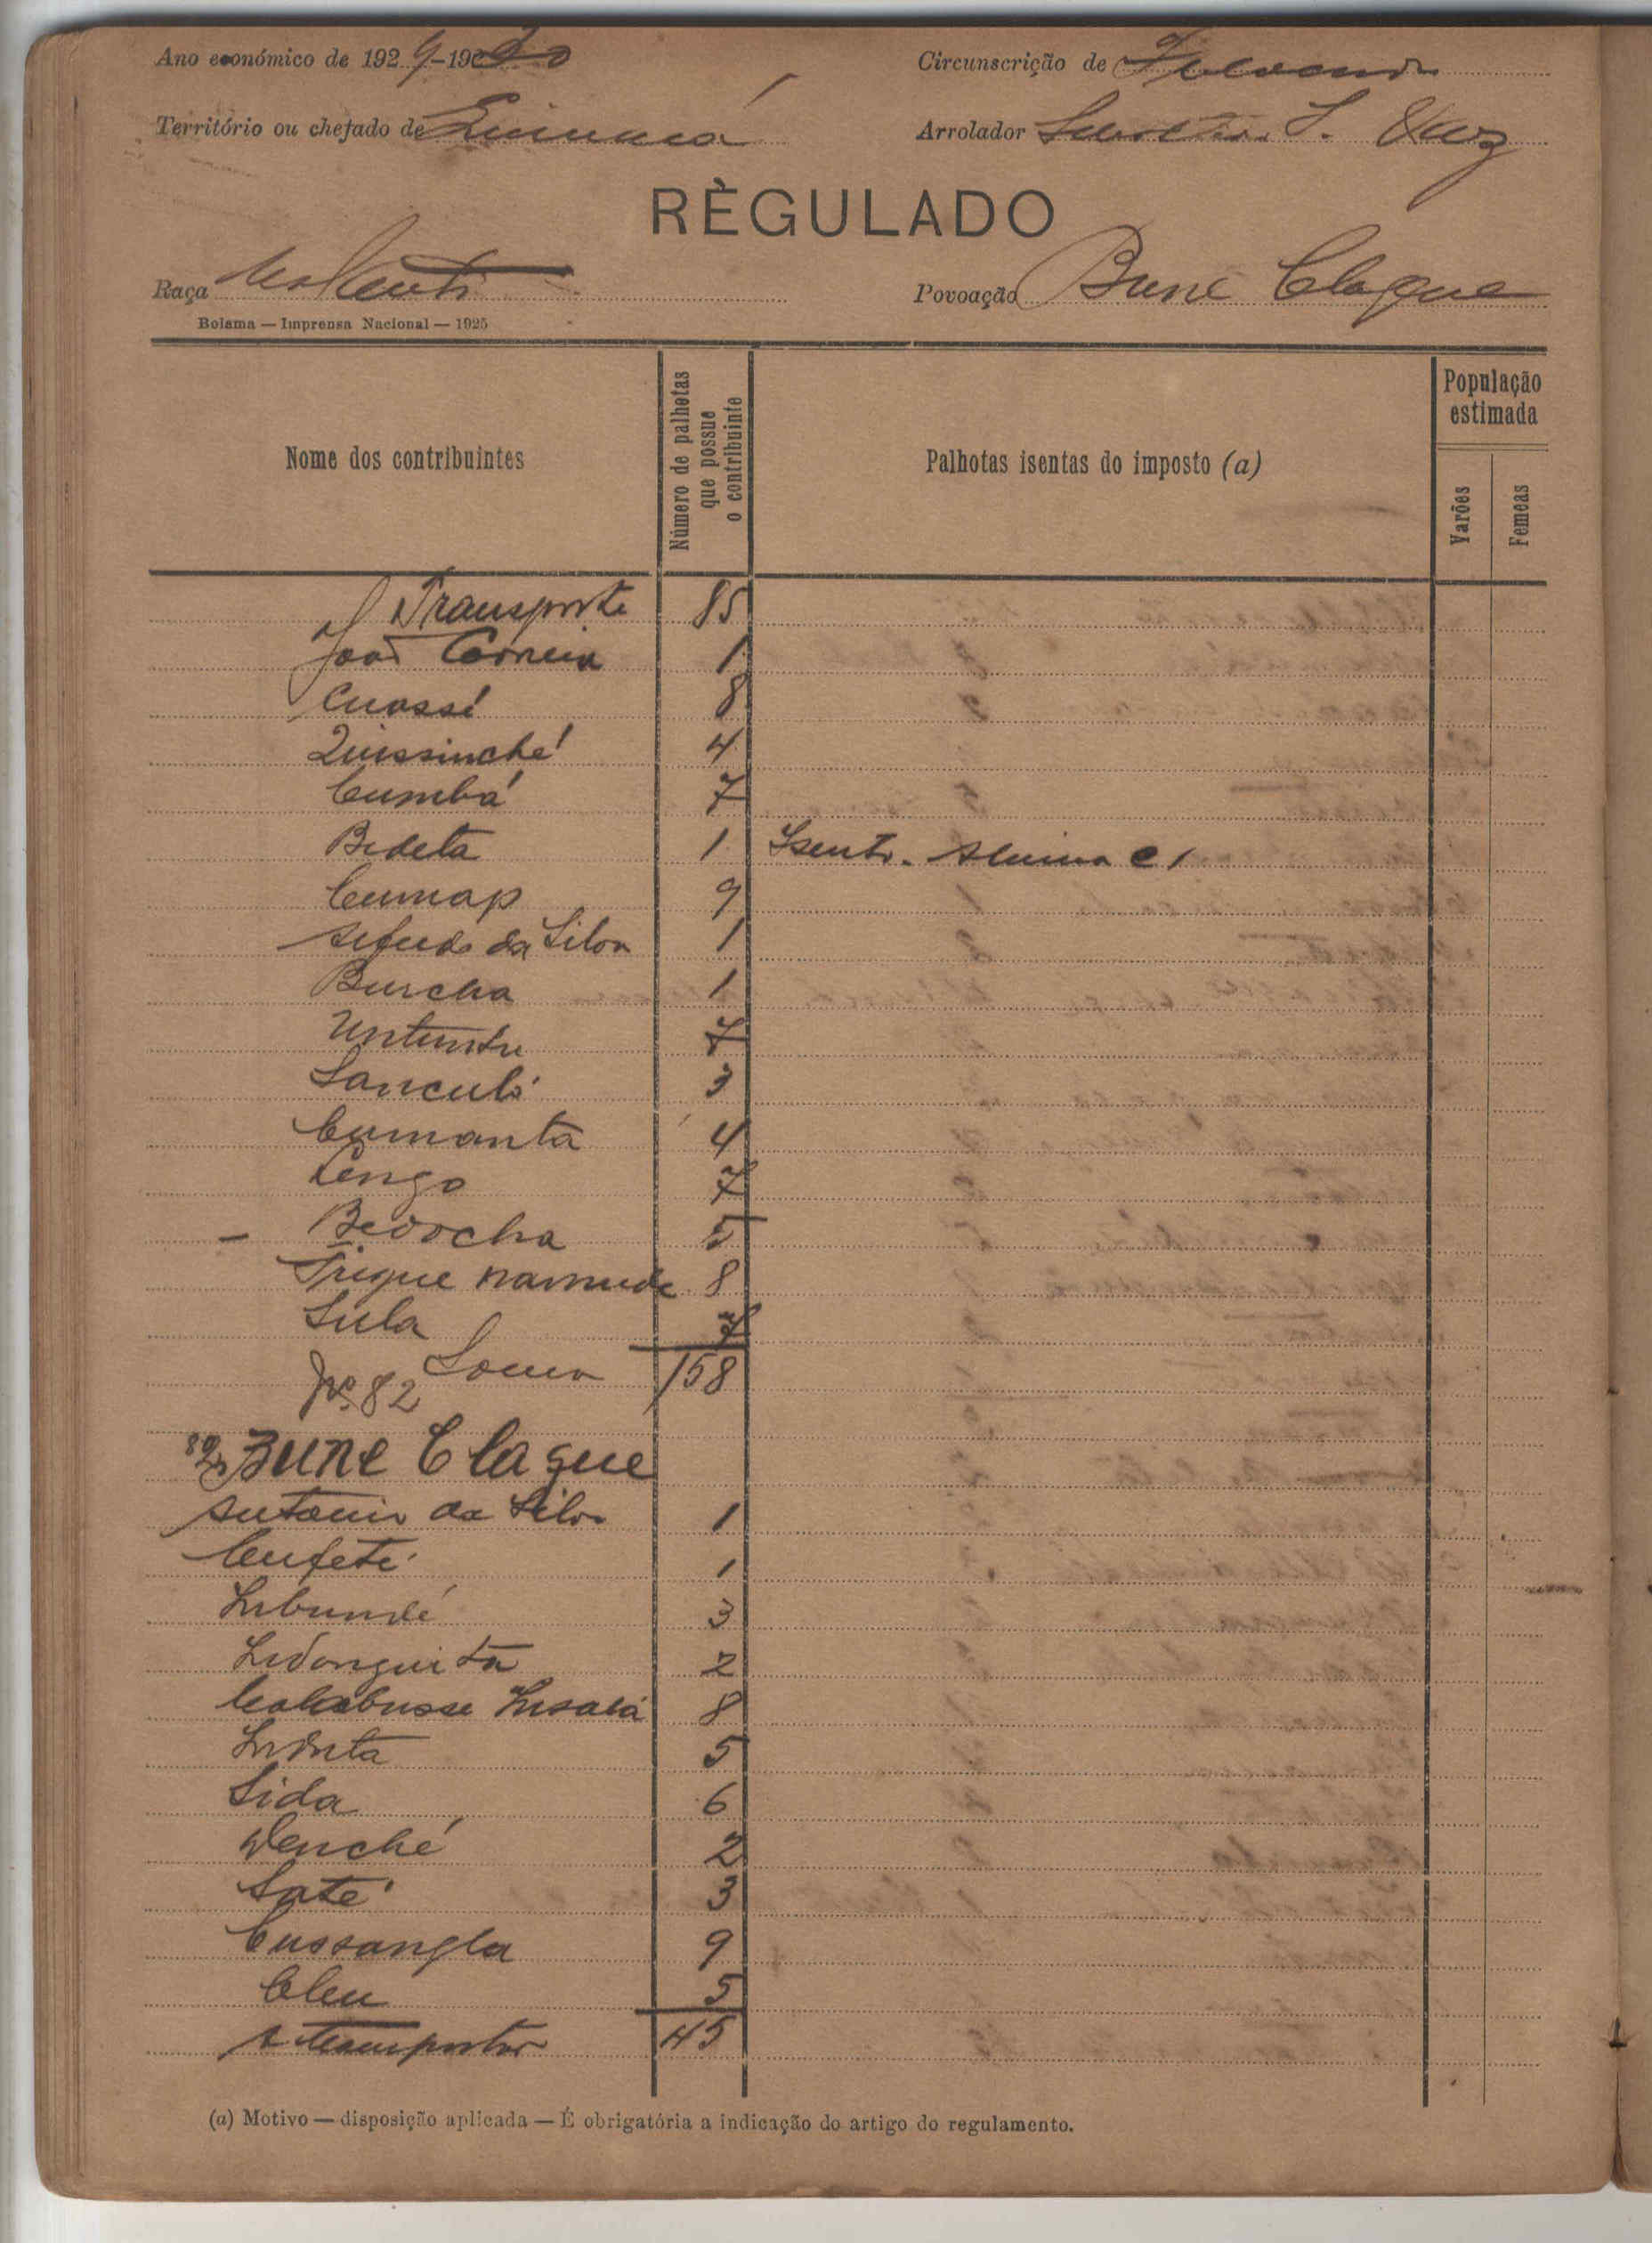 Ano económico de 1929-1930
Circunscrição de
Território ou chefado de
Arrolador S. Vaz
RÈGULADO
Raça
Povoação Bune Claque
Bolama — Imprensa Nacional — 1925
Nome dos contribuintes
Número de palhotas que possue o contribuinte
Palhotas isentas do imposto (a)
População estimada
Varões
Femeas
Transporte 85
João Correia 1
Cuassé 8
Quissinché 4
Cumbá 7
Bideta 1 Isento. Alinea e 1
Cumap 9
da Silva 1
Burcha 1
Untundu 7
Sanculó 3
Cumanta 4
Lengo 7
Bedocha 5
Trique namude 8
Sula 7
Soma 158
Nº 82
82 Bune Claque
Antonio da Silva 1
Cufeté 1
3
2
8
5
Sida 6
Denché 2
Saté 3
Cussangla 9
Cleu 5
A transportar 45
(a) Motivo — disposição aplicada — É obrigatória a indicação do artigo do regulamento.